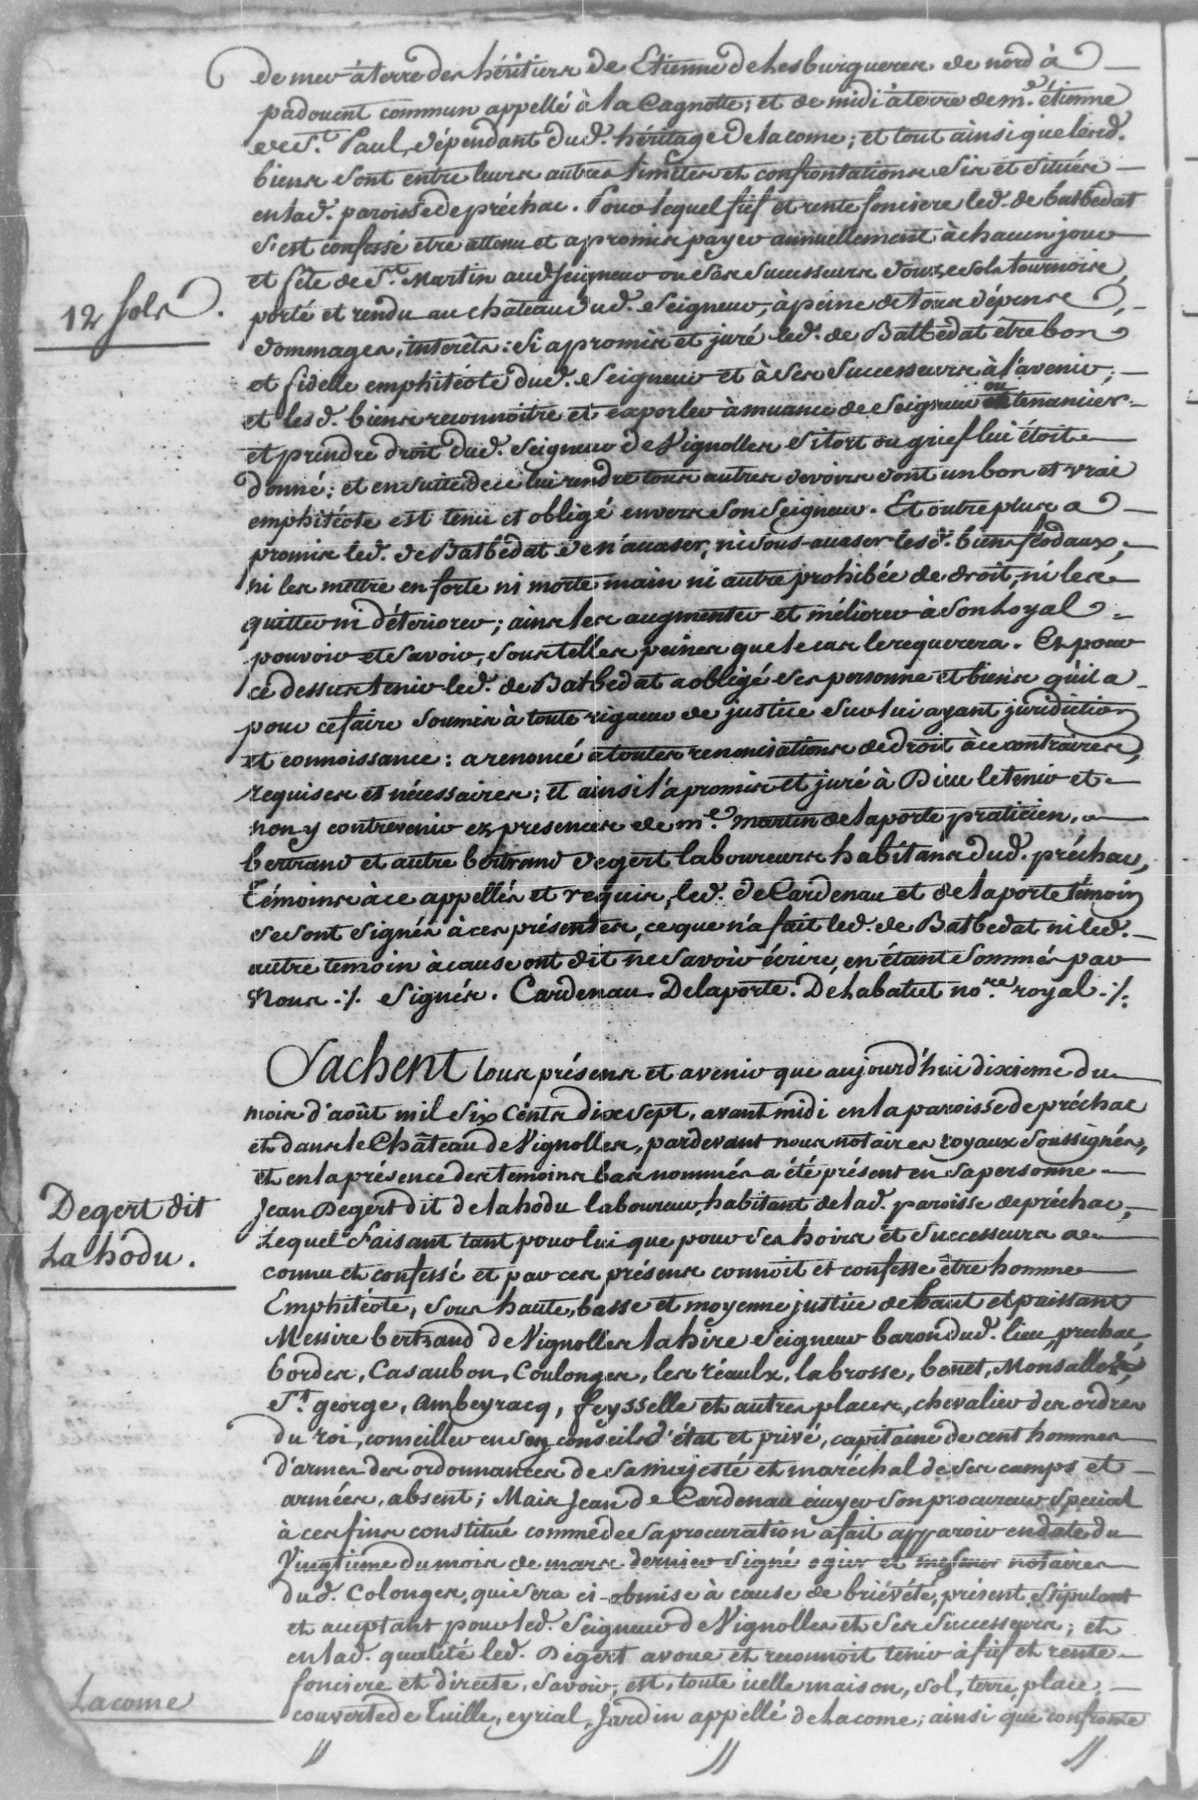 de mer à terre des héritiers de Etienne de Lesburgueres de nord à
padouent commun appellé à la Cagnotte; et de midi à terre de m.e étienne
de S.t Paul, dépendant dud. héritage de lacome; et tout ainsi que lesd.
biens sont entre leurs autres limites et confrontations sis et situés
en lad. paroisse de préchac. Pour lequel fief et rente fonciere led. de batbedat
s'est confessé etre attenu et a promis payer annuellement à chacun jour
et fête de S.t Martin aud. seigneur ou ses successeurs douze sols tournois,
12 sols.
porté et rendu au château dud. Seigneur, à peine de tous dépens,
dommages, interêts: si a promis et juré led. de Batbedat être bon
et fidelle emphitéote dud. Seigneur et à ses successeurs à l'avenir;
et lesd. biens reconnoitre et exporler à muance de Seigneur ou tenancier
et prendre droit dud. seigneur de Vignolles si tort ou grief lui étoit
donné; et en suite de ce lui rendre tous autres devoirs dont un bon et vrai
emphitéote est tenu et obligé envers son seigneur. Et outre plus a
promis led. de Batbedat de n'avaser, ni sous-avaser lesd. biens féodaux,
ni les mettre en forte ni morte main ni autre prohibée de droit, ni les
quitter ni déteriorer; ains les augmenter et méliorer à son loyal
pouvoir et savoir, sous telles peines que le cas le requerera. Et pour
ce dessus tenir led. de Batbedat a obligé ses personne et biens qu'il a
pour ce faire soumis à toute rigueur de justice sur lui ayant juridiction
et connoissance: a renoncé à toutes renonciations de droit à ce contraires,
requises et nécessaires; et ainsi l'a promis et juré à Dieu le tenir et
non y contrevenir ez presences de m.e martin de laporte praticien,
bertrand et autre bertrand degert laboureurs habitans dud. préchac,
Témoins à ce appellés et requis, led. de Cardenau et de laporte témoin
se sont signés à ces présentes, ce que n'a fait led. de Batbedat ni led.
autre temoin à cause ont dit ne savoir écrire, en étant sommés par
Nous ./. Signés. Cardenau. Delaporte. Delabatut no.re royal ./.
Sachent tous présens et avenir que aujourd'hui dixieme du
mois d'août mil six cents dix sept, avant midi en la paroisse de préchac
et dans le Château de Vignolles, pardevant nous notaires royaux soussignés,
et en la présence des temoins bas nommés a été présent en sa personne
Degert dit
Lahodu.
Jean Degert dit de lahodu laboureur, habitant de lad. paroisse de préchac,
Lequel faisant tant pour lui que pour ses hoirs et successeurs a
connu et confessé et par ces présens connoit et confesse être homme
Emphitéote, sous haute, basse et moyenne justice de haut et puissant
Messire bertrand de Vignolles lahire seigneur baron dud. lieu, prechac
bordes, Casaubon, Coulonges, les réaulx, labrosse, benet, Monsalles,
S.t george, Ambeyracq, feysselle et autres places, chevalier des ordres
du roi, conseiller en ses conseils d'état et privé, capitaine de cent hommes
d'armes des ordonnances de sa majesté et maréchal de ses camps et
armées, absent; Mais Jean de Cardenau écuyer son procureur special
à ces fins constitué comme de sa procuration a fait apparoir en date du
Vingtieme du mois de mars dernier signé notaires
dud. Colonges, qui sera ci obmise à cause de briéveté, présent, stipulant
et acceptant pour led. Seigneur de Vignolles et ses successeurs; et
en lad. qualité led. Degert avoue et reconnoit tenir à fief et rente
fonciere et directe, savoir, est, toute icelle maison, sol, terre, place,
Lacome
couverte de Tuille, eyrial, Jardin appellé de Lacome; ainsi que confronte